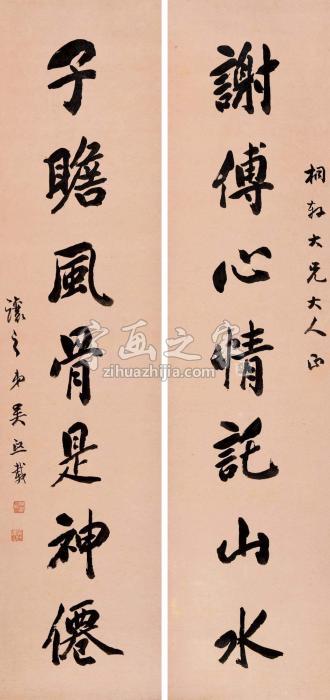 桐軒大兄大人正
謝傅心情託山水
子瞻風骨是神僊
讓之弟吳熙載
字画之家
zihuazhijia.com